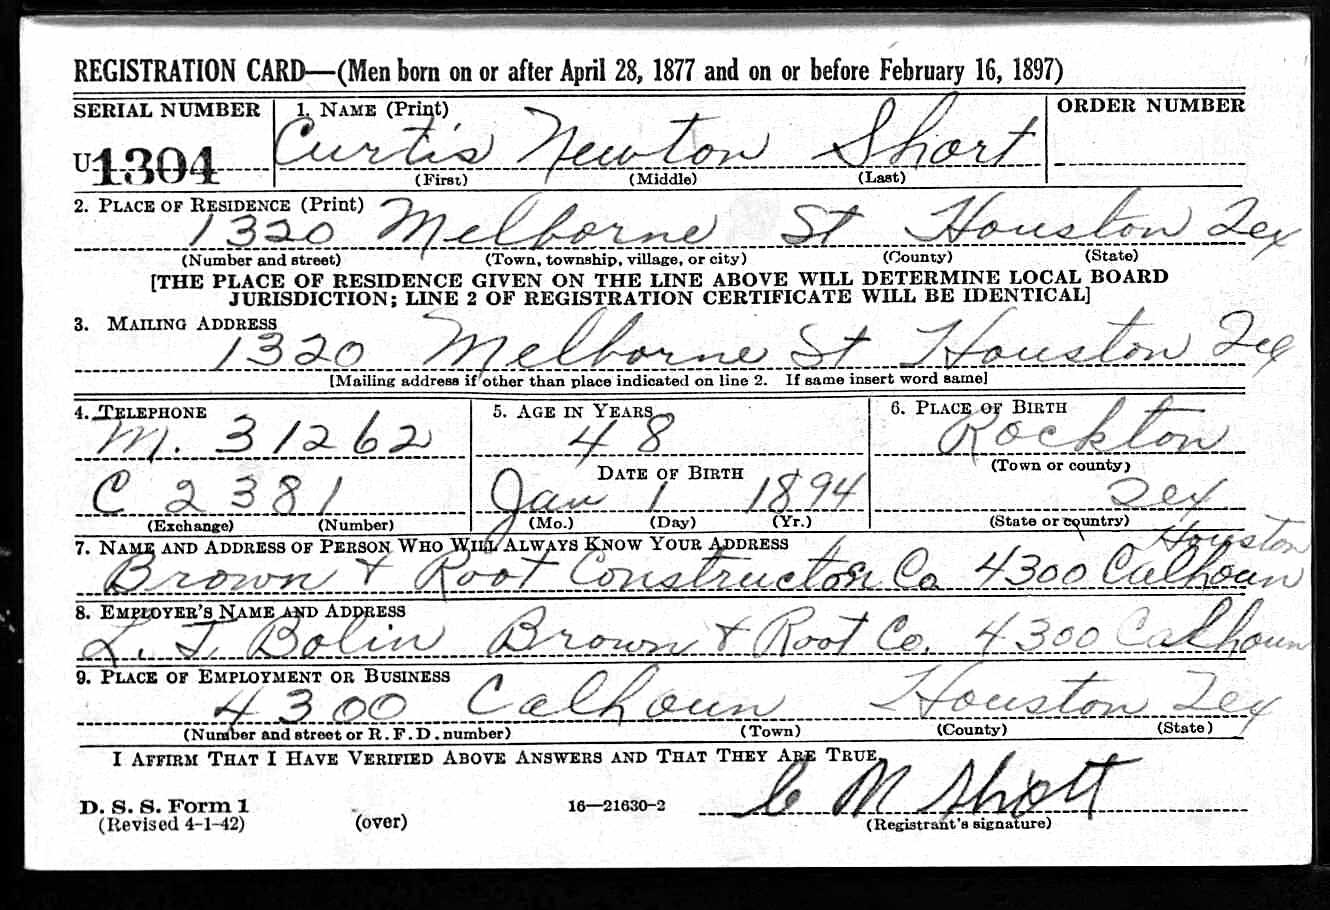 REGISTRATION CARD—(Men born on or after April 28, 1877 and on or before February 16, 1897)
SERIAL NUMBER 1. NAME (Print) ORDER NUMBER
U1304 Curtis Newton Short
(First) (Middle) (Last)
2. PLACE OF RESIDENCE (Print)
1320 Melborne St Houston Tex
(Number and street) (Town, township, village, or city) (County) (State)
[THE PLACE OF RESIDENCE GIVEN ON THE LINE ABOVE WILL DETERMINE LOCAL BOARD
JURISDICTION; LINE 2 OF REGISTRATION CERTIFICATE WILL BE IDENTICAL]
3. MAILING ADDRESS
1320 Melborne St Houston Tex
[Mailing address if other than place indicated on line 2. If same insert word same]
4. TELEPHONE 5. AGE IN YEARS 6. PLACE OF BIRTH
M. 31262 48 Rockton
DATE OF BIRTH (Town or county)
C 2381 Jan 1 1894 Tex
(Exchange) (Number) (Mo.) (Day) (Yr.) (State or country)
7. NAME AND ADDRESS OF PERSON WHO WILL ALWAYS KNOW YOUR ADDRESS Houston
Brown & Root Construction Co 4300 Calhoun
8. EMPLOYER'S NAME AND ADDRESS
L. T. Bolin Brown & Root Co. 4300 Calhoun
9. PLACE OF EMPLOYMENT OR BUSINESS
4300 Calhoun Houston Tex
(Number and street or R. F. D. number) (Town) (County) (State)
I AFFIRM THAT I HAVE VERIFIED ABOVE ANSWERS AND THAT THEY ARE TRUE.
C N Short
D. S. S. Form 1 16—21630-2
(Revised 4-1-42) (over) (Registrant's signature)